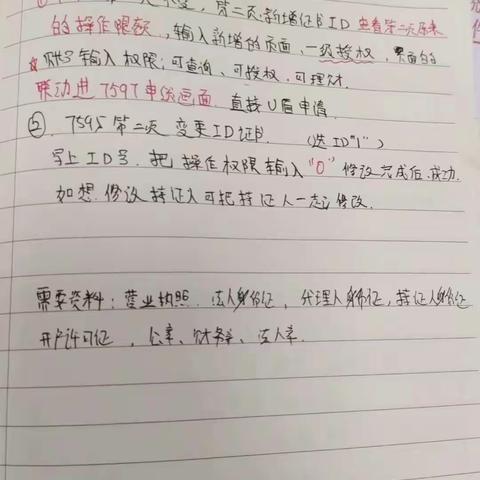 第二页.新增证书ID 查看第一页原来
的操作限额,输入新增的页面,一级授权,界面的
☆ RHS输入权限:可查询、可授权、可理财.
联动进7597申绘画面.直接U盾申请.
② 7595第二页 变更ID证书. (选ID"1")
写上ID号.把操作权限输入"0"修改完成后.成功.
如想.修改持证人可把持证人一起修改.
需要资料:营业执照.法人身份证,代理人身份证,持证人身份证
开户许可证,公章、财务章、法人章.